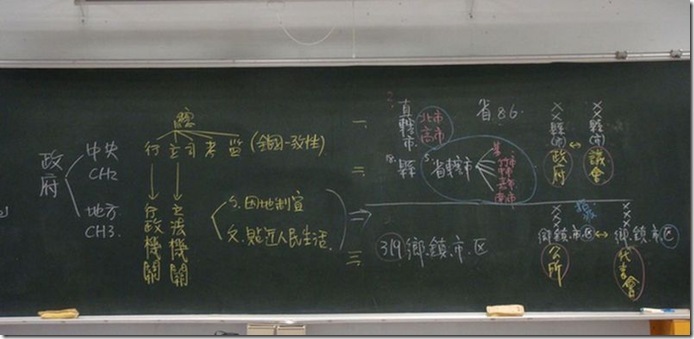 政府
中央
CH2
地方
CH3.
總
行立司考監
(全國一致性)
行政機關
立法機關
ㄅ.因地制宜
ㄆ.貼近人民生活
一
二
三
直轄市
北市
高市
縣
省轄市
省 86.
319鄉.鎮.市.区
XX縣(市)政府
XX縣(市)議會
XXX鄉.鎮.市.区公所
XXX鄉.鎮.市.区代表會